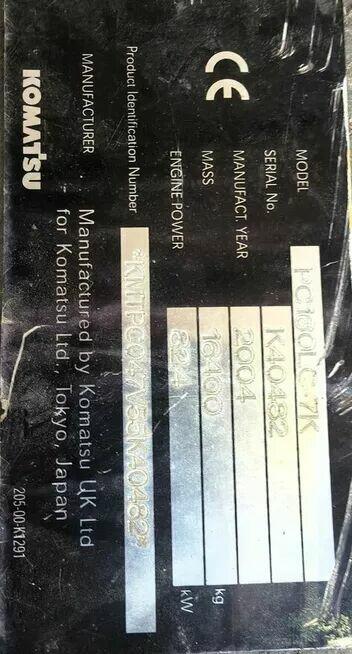 MODEL PC160LC-7K
SERIAL No. K40482
MANUFACT. YEAR 2004
MASS 16400 kg
ENGINE POWER 82.4 kW
CE
Product Identification Number
*KMTPC047V55K40482*
MANUFACTURER Manufactured by Komatsu UK Ltd
for Komatsu Ltd., Tokyo, Japan
KOMATSU
205-00-K1291